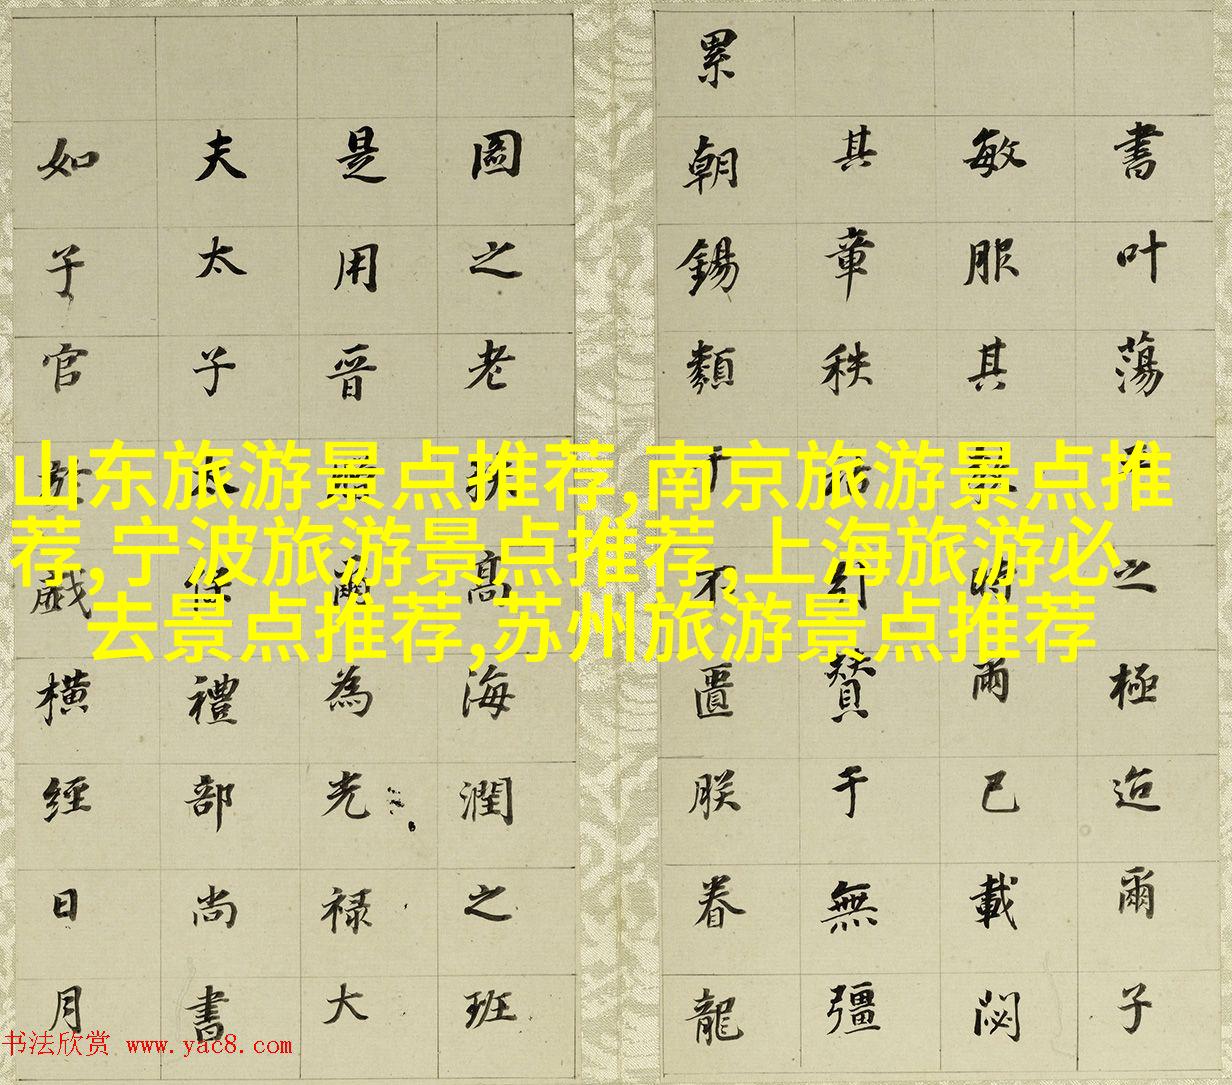 書叶蕩之極迨爾子
敏服其雨已載閟
其章秩贊于無彊
累朝錫類于不匱朕眷龍
圖之老扶高海潤之班
是用晉爾為光禄大
夫太子太保禮部尚書
如子官於戲橫經日月
山东旅游景点推荐,南京旅游景点推
荐,宁波旅游景点推荐,上海旅游必
去景点推荐,苏州旅游景点推荐
书法欣赏 www.yac8.com